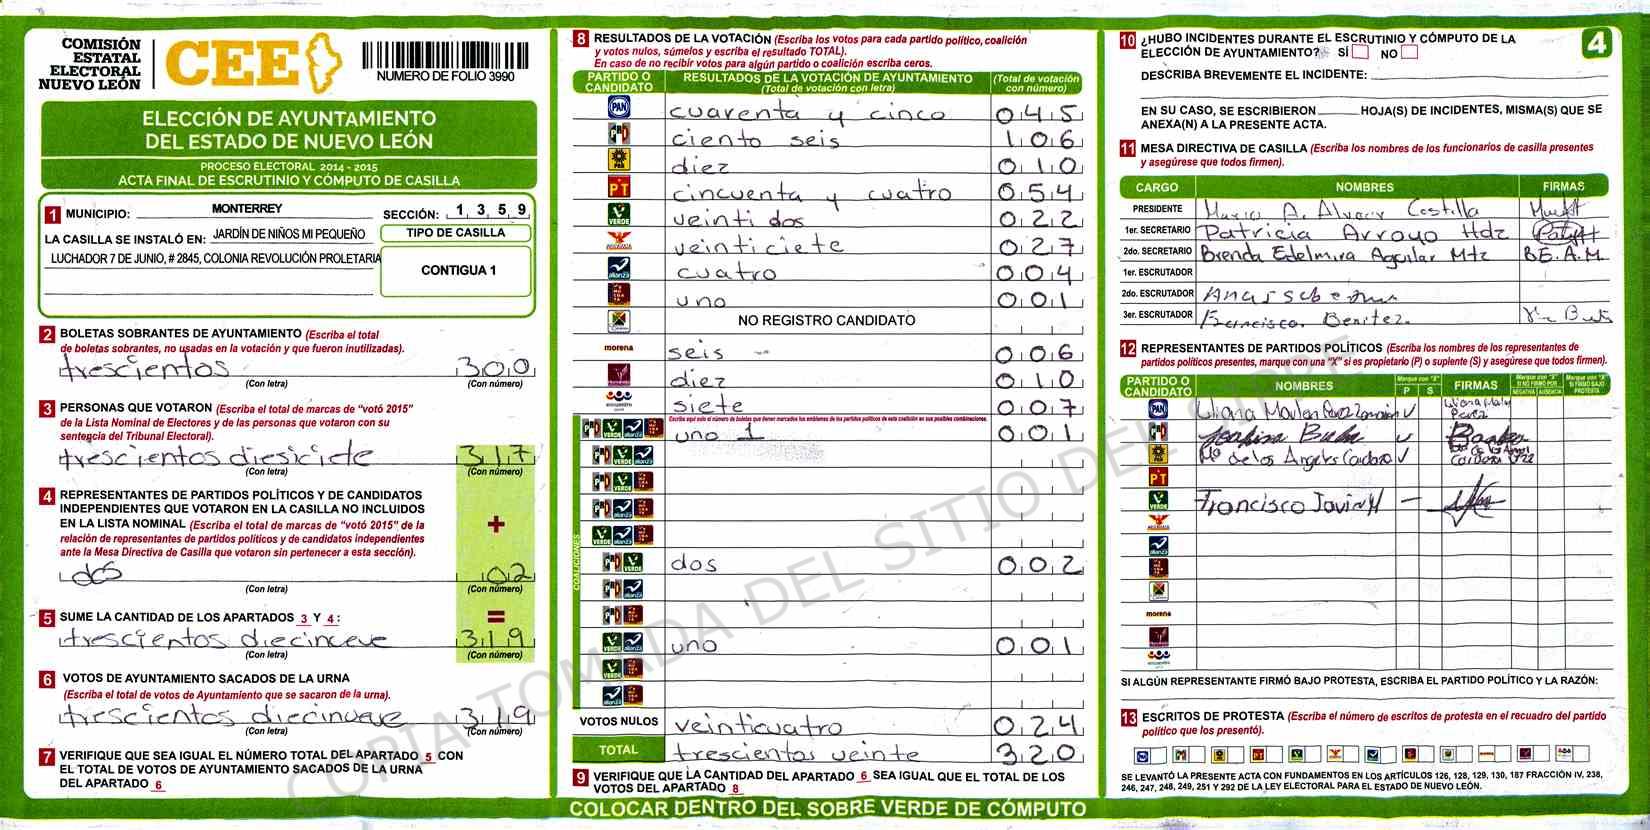 COMISIÓN
ESTATAL
ELECTORAL
NUEVO LEÓN
CEE
NUMERO DE FOLIO 3990
ELECCIÓN DE AYUNTAMIENTO
DEL ESTADO DE NUEVO LEÓN
PROCESO ELECTORAL 2014 - 2015
ACTA FINAL DE ESCRUTINIO Y CÓMPUTO DE CASILLA
1 MUNICIPIO: MONTERREY SECCIÓN: 1 3 5 9
LA CASILLA SE INSTALÓ EN: JARDÍN DE NIÑOS MI PEQUEÑO
LUCHADOR 7 DE JUNIO, # 2845, COLONIA REVOLUCIÓN PROLETARIA
TIPO DE CASILLA
CONTIGUA 1
2 BOLETAS SOBRANTES DE AYUNTAMIENTO (Escriba el total
de boletas sobrantes, no usadas en la votación y que fueron inutilizadas).
trescientos 300
(Con letra) (Con número)
3 PERSONAS QUE VOTARON (Escriba el total de marcas de "votó 2015"
de la Lista Nominal de Electores y de las personas que votaron con su
sentencia del Tribunal Electoral).
trescientos diesiciete 317
(Con letra) (Con número)
4 REPRESENTANTES DE PARTIDOS POLÍTICOS Y DE CANDIDATOS
INDEPENDIENTES QUE VOTARON EN LA CASILLA NO INCLUIDOS
EN LA LISTA NOMINAL (Escriba el total de marcas de "votó 2015" de la
relación de representantes de partidos políticos y de candidatos independientes
ante la Mesa Directiva de Casilla que votaron sin pertenecer a esta sección).
+
dos 02
(Con letra) (Con número)
5 SUME LA CANTIDAD DE LOS APARTADOS 3 Y 4: =
trescientos diecinueve 319
(Con letra) (Con número)
6 VOTOS DE AYUNTAMIENTO SACADOS DE LA URNA
(Escriba el total de votos de Ayuntamiento que se sacaron de la urna).
trescientos diecinueve 319
(Con letra) (Con número)
7 VERIFIQUE QUE SEA IGUAL EL NÚMERO TOTAL DEL APARTADO 5 CON
EL TOTAL DE VOTOS DE AYUNTAMIENTO SACADOS DE LA URNA
DEL APARTADO 6
8 RESULTADOS DE LA VOTACIÓN (Escriba los votos para cada partido político, coalición
y votos nulos, súmelos y escriba el resultado TOTAL).
En caso de no recibir votos para algún partido o coalición escriba ceros.
PARTIDO O CANDIDATO RESULTADOS DE LA VOTACIÓN DE AYUNTAMIENTO (Total de votación con letra) (Total de votación con número)
PAN cuarenta y cinco 045
PRD ciento seis 106
diez 010
PT cincuenta y cuatro 054
VERDE veinti dos 022
veinticiete 027
alianza cuatro 004
uno 001
NO REGISTRO CANDIDATO
morena seis 006
diez 010
encuentro siete 007
Escriba aquí sólo el número de boletas que tienen marcados los emblemas de los partidos políticos de esta coalición en sus posibles combinaciones.
COALICIONES
uno 1 001
dos 002
uno 001
VOTOS NULOS veinticuatro 024
TOTAL trescientos veinte 320
9 VERIFIQUE QUE LA CANTIDAD DEL APARTADO 6 SEA IGUAL QUE EL TOTAL DE LOS
VOTOS DEL APARTADO 8
COLOCAR DENTRO DEL SOBRE VERDE DE CÓMPUTO
10 ¿HUBO INCIDENTES DURANTE EL ESCRUTINIO Y CÓMPUTO DE LA
ELECCIÓN DE AYUNTAMIENTO? SÍ NO
4
DESCRIBA BREVEMENTE EL INCIDENTE:
EN SU CASO, SE ESCRIBIERON HOJA(S) DE INCIDENTES, MISMA(S) QUE SE
ANEXA(N) A LA PRESENTE ACTA.
11 MESA DIRECTIVA DE CASILLA (Escriba los nombres de los funcionarios de casilla presentes
y asegúrese que todos firmen).
CARGO NOMBRES FIRMAS
PRESIDENTE A. Castilla
1er. SECRETARIO Patricia Arroyo Hdz
2do. SECRETARIO Brenda Edelmira Aguilar Mtz B.E.A.M.
1er. ESCRUTADOR
2do. ESCRUTADOR
3er. ESCRUTADOR Francisco Benitez
12 REPRESENTANTES DE PARTIDOS POLÍTICOS (Escriba los nombres de los representantes de
partidos políticos presentes, marque con una "X" si es propietario (P) o suplente (S) y asegúrese que todos firmen).
PARTIDO O CANDIDATO NOMBRES Marque con "X" P S FIRMAS Marque con "X" SI NO FIRMÓ POR NEGATIVA AUSENCIA Marque con "X" SI FIRMÓ BAJO PROTESTA
PAN
Ma de los Angeles Cardoza
PT
VERDE Francisco Javier
morena
encuentro
SI ALGÚN REPRESENTANTE FIRMÓ BAJO PROTESTA, ESCRIBA EL PARTIDO POLÍTICO Y LA RAZÓN:
13 ESCRITOS DE PROTESTA (Escriba el número de escritos de protesta en el recuadro del partido
político que los presentó).
SE LEVANTÓ LA PRESENTE ACTA CON FUNDAMENTOS EN LOS ARTÍCULOS 126, 128, 129, 130, 187 FRACCIÓN IV, 238,
246, 247, 248, 249, 251 Y 292 DE LA LEY ELECTORAL PARA EL ESTADO DE NUEVO LEÓN.
COPIA TOMADA DEL SITIO DEL SIPRE